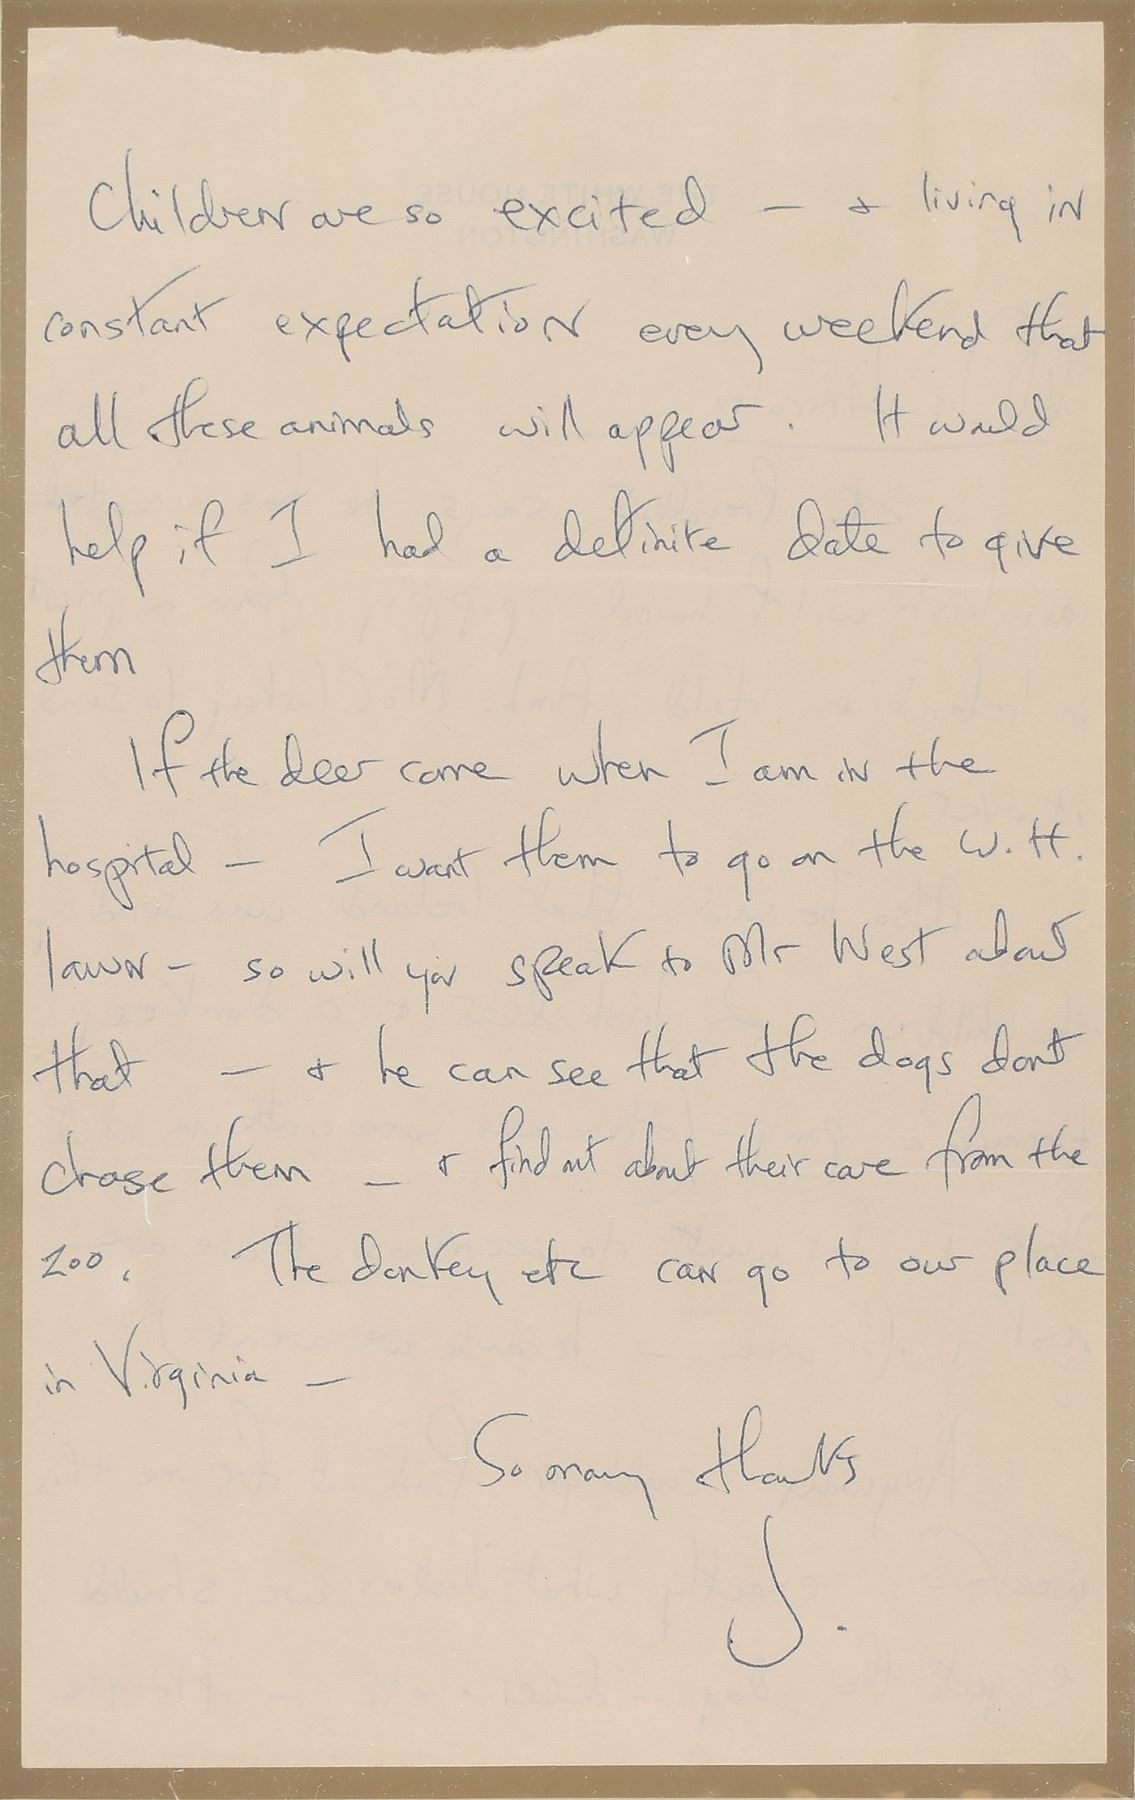 Children are so excited — & living in
constant expectation every weekend that
all these animals will appear. It would
help if I had a definite date to give
them
If the deer come when I am in the
hospital — I want them to go on the W.H.
lawn — so will you speak to Mr West about
that — & he can see that the dogs dont
chase them — & find out about their care from the
zoo. The donkey etc can go to our place
in Virginia —
So many thanks
J.